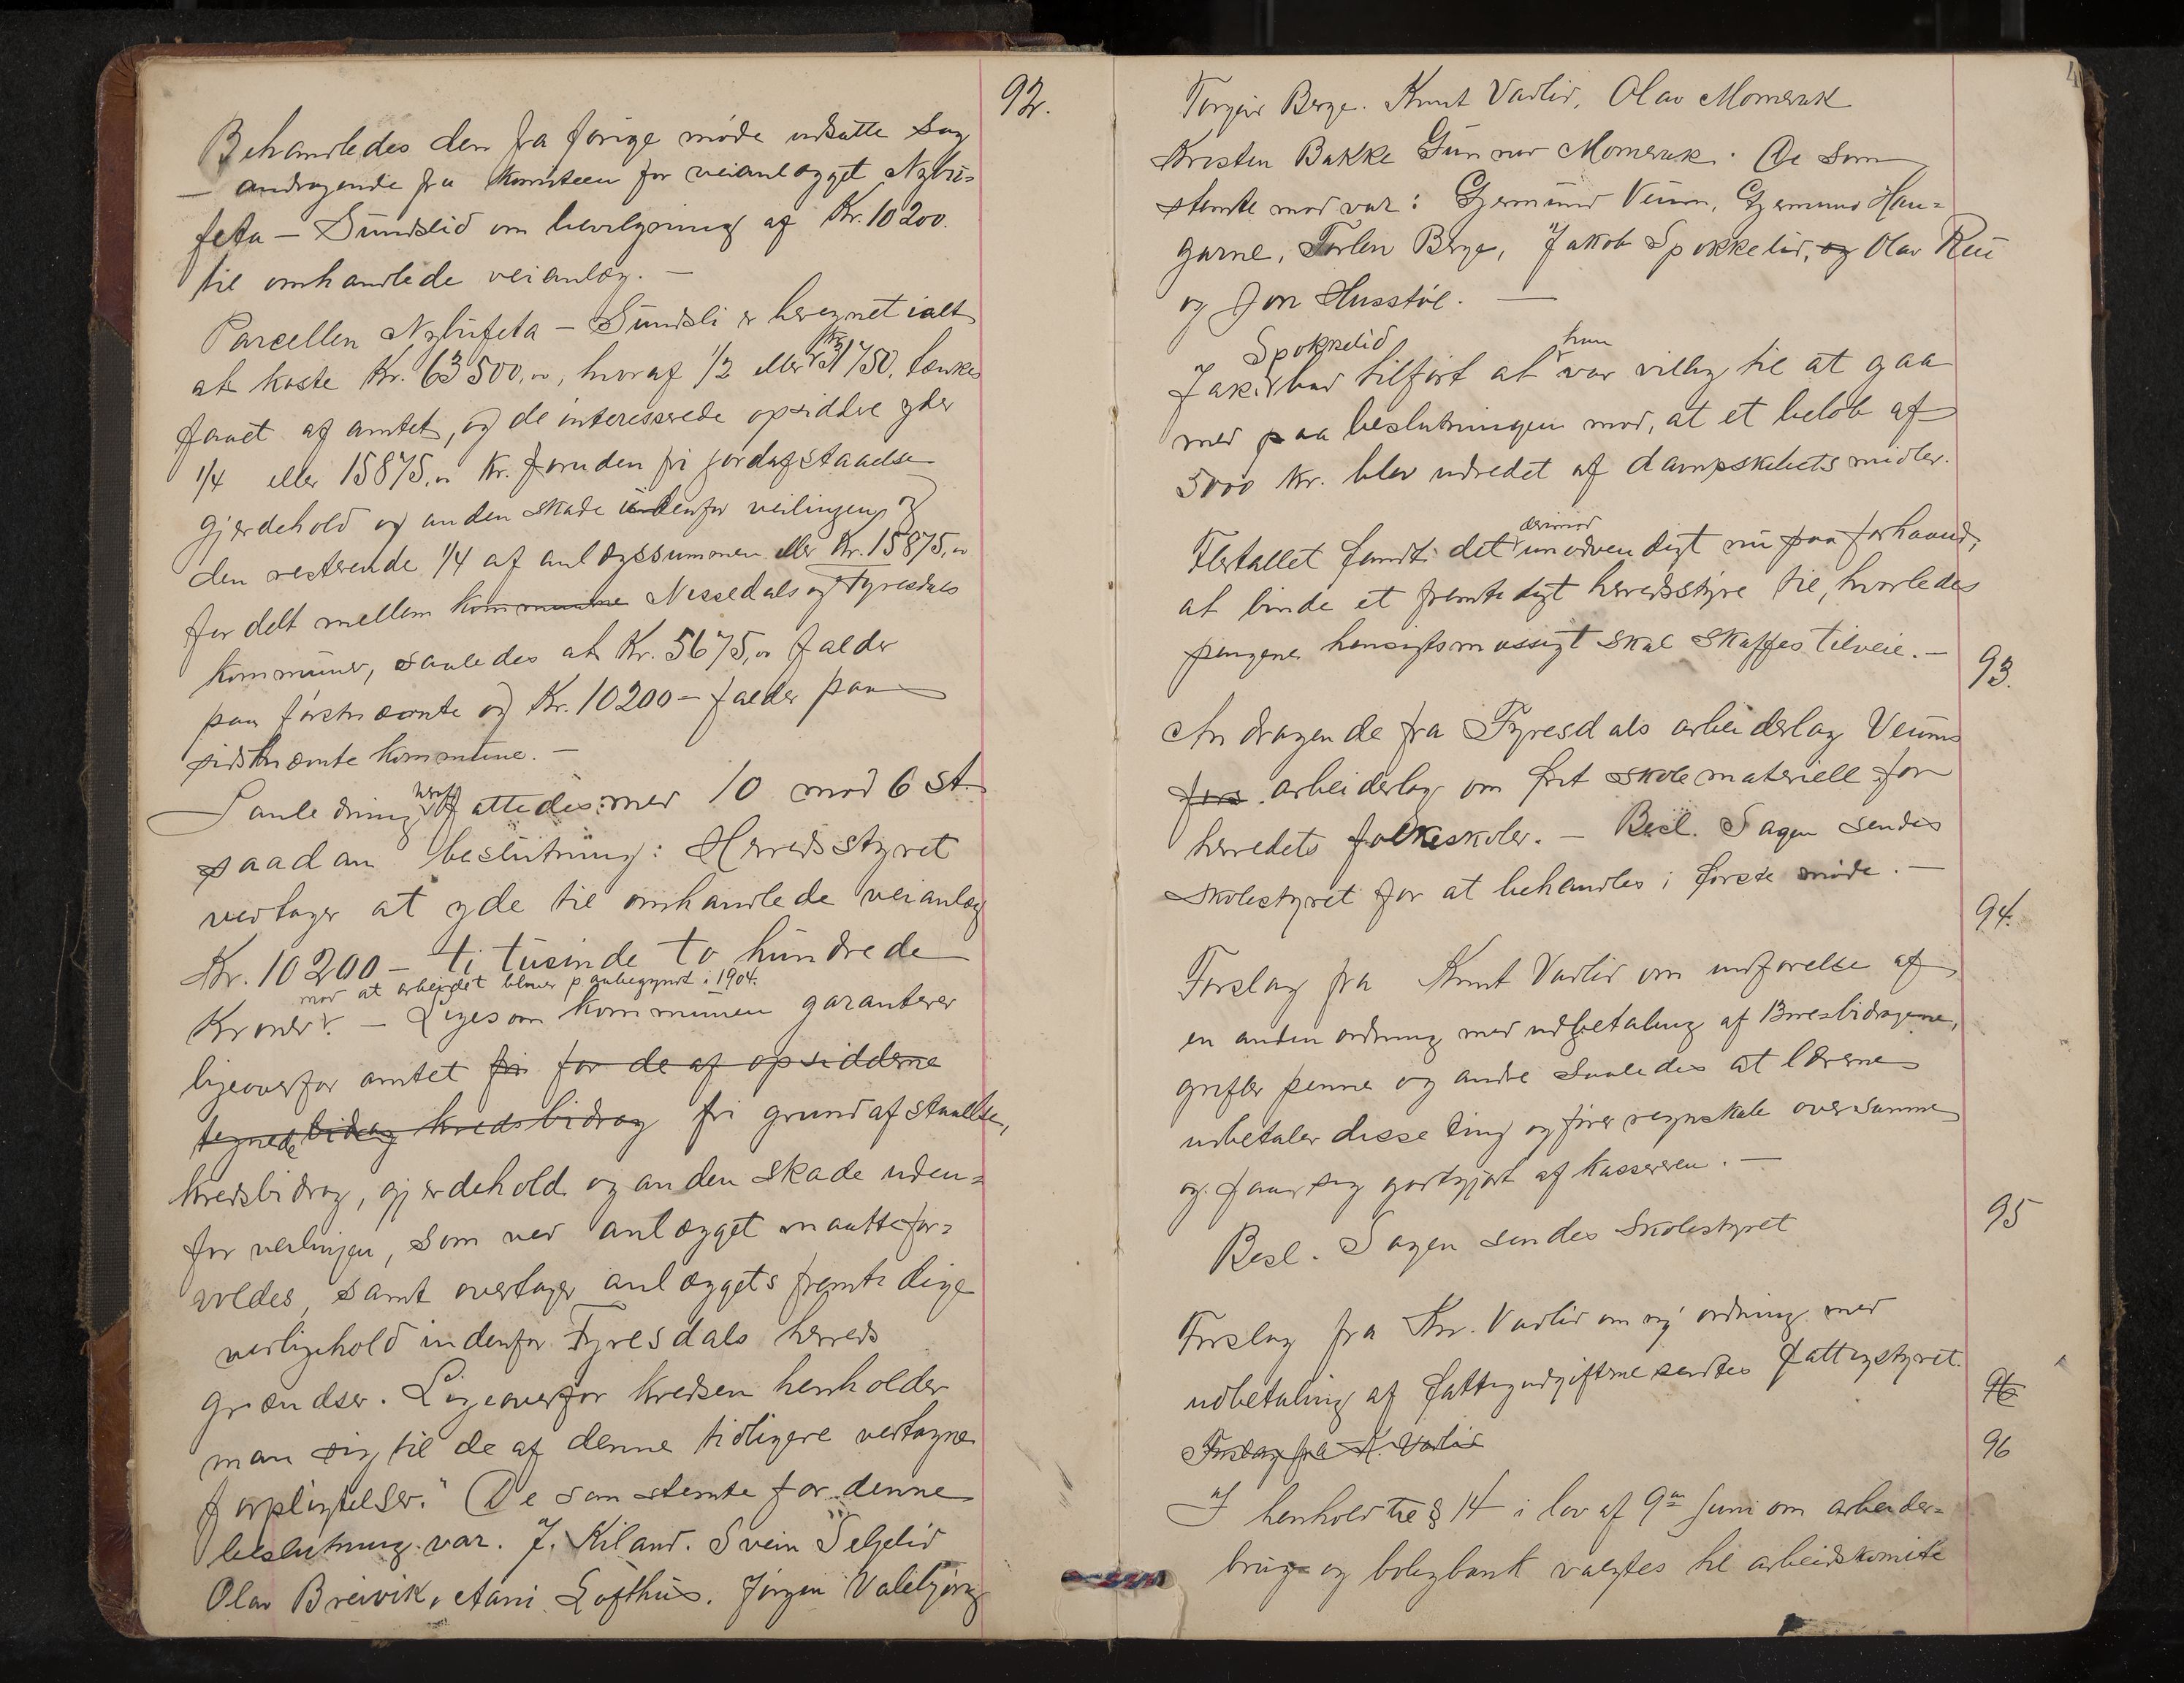 92.
Behandledes den fra forige møde udsatte sag
— andragende fra komiteen for veianlægget Nybu=
feta — Sundslid om bevilgning af Kr. 10200.
til omhandlede veianlæg. —
Parcellen Nybufeta — Sundsli er beregnet ialt
at koste Kr. 63500,00, hvoraf 1/2 eller Kr. 31750, tænkes
faaet af amtet, og de interesserede opsiddere yder
1/4 eller 15875,00 Kr. foruden fri jordafstaaelse
gjerdehold og anden skade udenfor veilingen, og
den resterende 1/4 af anlægssummen eller Kr. 15875,00
fordelt mellem kommunene Nissedals og Fyresdals
kommuner, saaledes at Kr. 5675,00 falder
paa førstnævnte og Kr. 10200 — falder paa
sidstnævnte kommune. —
I anledning heraf fattedes med 10 mod 6 st.
saadan beslutning: Herredsstyret
vedtager at yde til omhandlede veianlæg
Kr. 10200 — ti tusinde to hundrede
mod at arbeidet bliver paabegyndt i 1904.
Kroner. — Ligesom kommunen garanterer
ligeoverfor amtet fri for de af opsidderne
tegnede bidrag kredsbidrag fri grundafstaaelse,
kredsbidrag, gjerdehold og anden skade uden=
for veilinjen, som ved anlægget maatte for=
voldes, samt overtager anlæggets fremtidige
vedligehold indenfor Fyresdals herreds
grændser. Ligeoverfor kredsen henholder
man sig til de af denne tidligere vedtagne
forpligtelser." De som stemte for denne
beslutning var. J. Kiland. Svein Seljelid
Olav Breivik, Aani Lofthus. Jørgen Valebjørg
Torgeir Berge. Knut Vadlid, Olav Momrak
Kristen Bakke Gunnar Momrak. De som
stemte mod var: Gjermund Veum, Gjermund Hau=
garne, Torlev Berge, Jakob Spokkelid, og Olav Rui
og Jon Husstøl. —
Jak. Spokkelid bad tilført at han var villig til at gaa
med paa beslutningen mod, at et beløb af
5000 kr. blev udredet af dampskibets midler.
Flertallet fandt det derimod unødvendigt nu paa forhaand,
at binde et fremtidigt herredsstyre til, hvorledes
pengene hensigtsmæssigt skal skaffes tilveie. —
93.
Andragende fra Fyresdals arbeiderlag Veums
arbeiderlag om frit skolemateriell for
herredets folkeskoler. — Besl. Sagen sendes
skolestyret for at behandles i første møde. —
94.
Forslag fra Knut Vadlid om indførelse af
en anden ordning med udbetaling af
grifler penne og andre saaledes at lærerne
udbetaler disse ting og fører regnskab over samme
og faar sig godtgjort af kassereren. —
Besl. Sagen sendes Skolestyret
95
Forslag fra Kn. Vadlid om ny ordning med
udbetaling af fattigudgifterne sendtes fattigstyret.
96
Forslag fra K. Vadlid
96
I henhold til § 14 i lov af 9de Juni om arbeider=
brug og boligbank valgtes til arbeidskomite